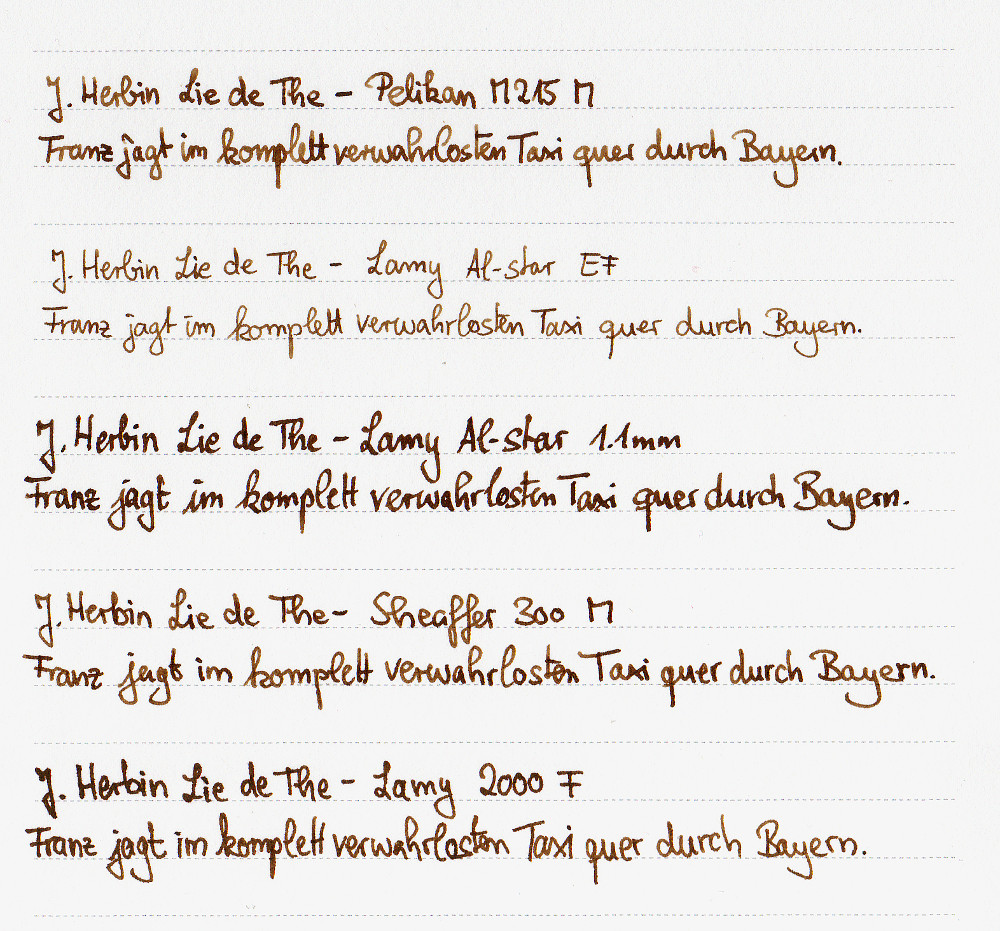 J. Herbin Lie de The - Pelikan M215 M
Franz jagt im komplett verwahrlosten Taxi quer durch Bayern.
J. Herbin Lie de The - Lamy Al-star EF
Franz jagt im komplett verwahrlosten Taxi quer durch Bayern.
J. Herbin Lie de The - Lamy Al-star 1.1mm
Franz jagt im komplett verwahrlosten Taxi quer durch Bayern.
J. Herbin Lie de The - Sheaffer 300 M
Franz jagt im komplett verwahrlosten Taxi quer durch Bayern.
J. Herbin Lie de The - Lamy 2000 F
Franz jagt im komplett verwahrlosten Taxi quer durch Bayern.